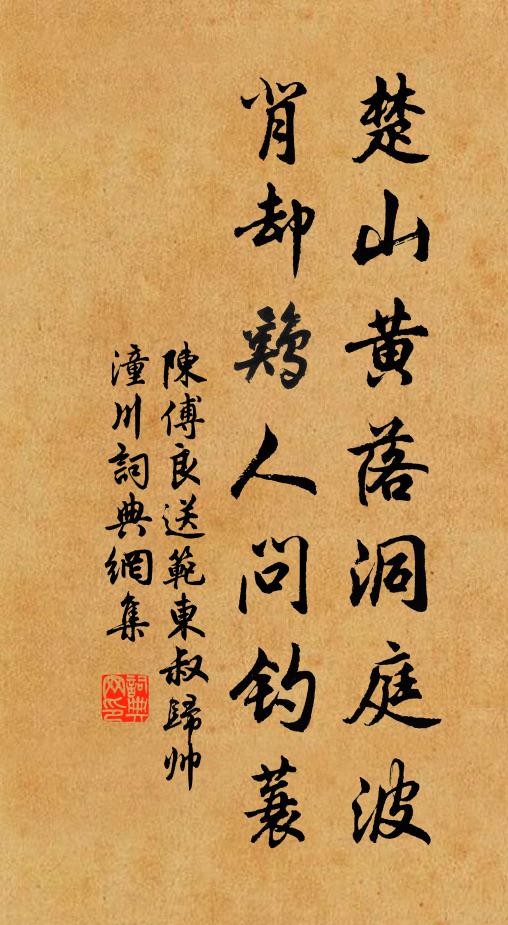 楚山黄落洞庭波
肯却鷄人問钓蓑
陳傅良送範東叔歸帅
潼川詞典網集
詞典网印